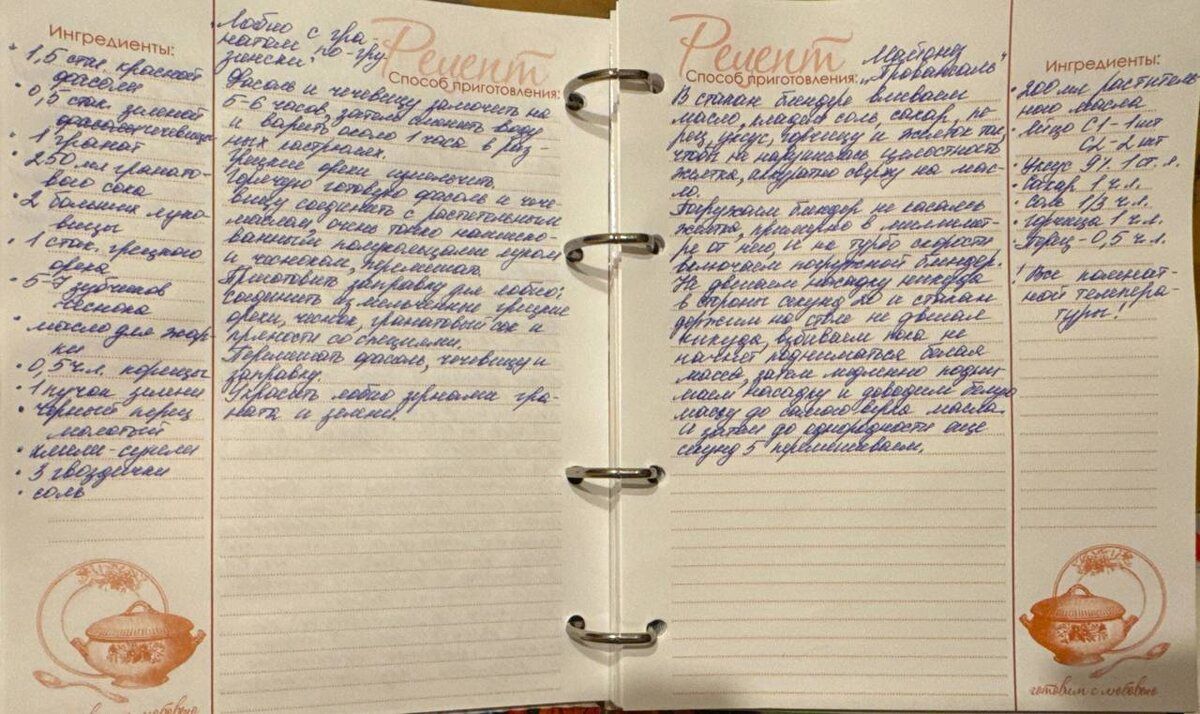 Ингредиенты:
1,5 стак. красной
фасоли
0,5 стак. зеленой
чечевицы
1 гранат
250 мл гранато-
вого сока
2 больших луко-
вицы
1 стак. грецкого
ореха
5-7 зубчиков
чеснока
масло для жар-
ки
0,5 ч.л. корицы
1 пучок зелени
черный перец
молотый
хмели-сунели
3 гвоздички
соль
Лобио с гра-
натом по-гру
зински
Рецепт
Способ приготовления:
Фасоль и чечевицу замочить на
5-6 часов, затем сменить воду
и варить около 1 часа в раз-
ных кастрюлях.
Грецкие орехи измельчить.
Горячую готовую фасоль и чече
вицу соединить с растительным
маслом, очень тонко нашинко
ванным полукольцами луком
и чесноком, перемешать.
Приготовить заправку для лобио:
соединить измельченные грецкие
орехи, чеснок, гранатовый сок и
пряности со специями.
Перемешать фасоль, чечевицу и
заправку.
Украсить лобио зернами гра-
ната и зелени.
Рецепт
Способ приготовления:
Майонез
"Провансаль"
В стакан блендера вливаем
масло, кладем соль, сахар, пе
рец, уксус, горчицу и желток так,
чтобы не нарушилась целостность
желтка, аккуратно сверху на мас-
ло.
Погружаем блендер не касаясь
желтка, примерно в миллимет-
ре от него, и на турбо скорости
включаем погружной блендер.
Не двигаем насадку никуда
в стороны секунд 20 и стакан
держим на столе не двигая
никуда, взбиваем пока не
начнет подниматься белая
масса, затем медленно подни-
маем насадку и доводим белую
массу до самого верха масла.
и затем до однородности еще
секунд 5 перемешиваем.
Ингредиенты:
200 мл раститель
ного масла
Яйцо С1 - 1 шт
С2 - 2 шт
Уксус 9% 1 ст. л.
Сахар 1 ч.л.
Соль 1/3 ч.л.
Горчица 1 ч.л.
Перец - 0,5 ч.л.
! Все комнат-
ной темпера-
туры!
готовим с любовью
готовим с любовью